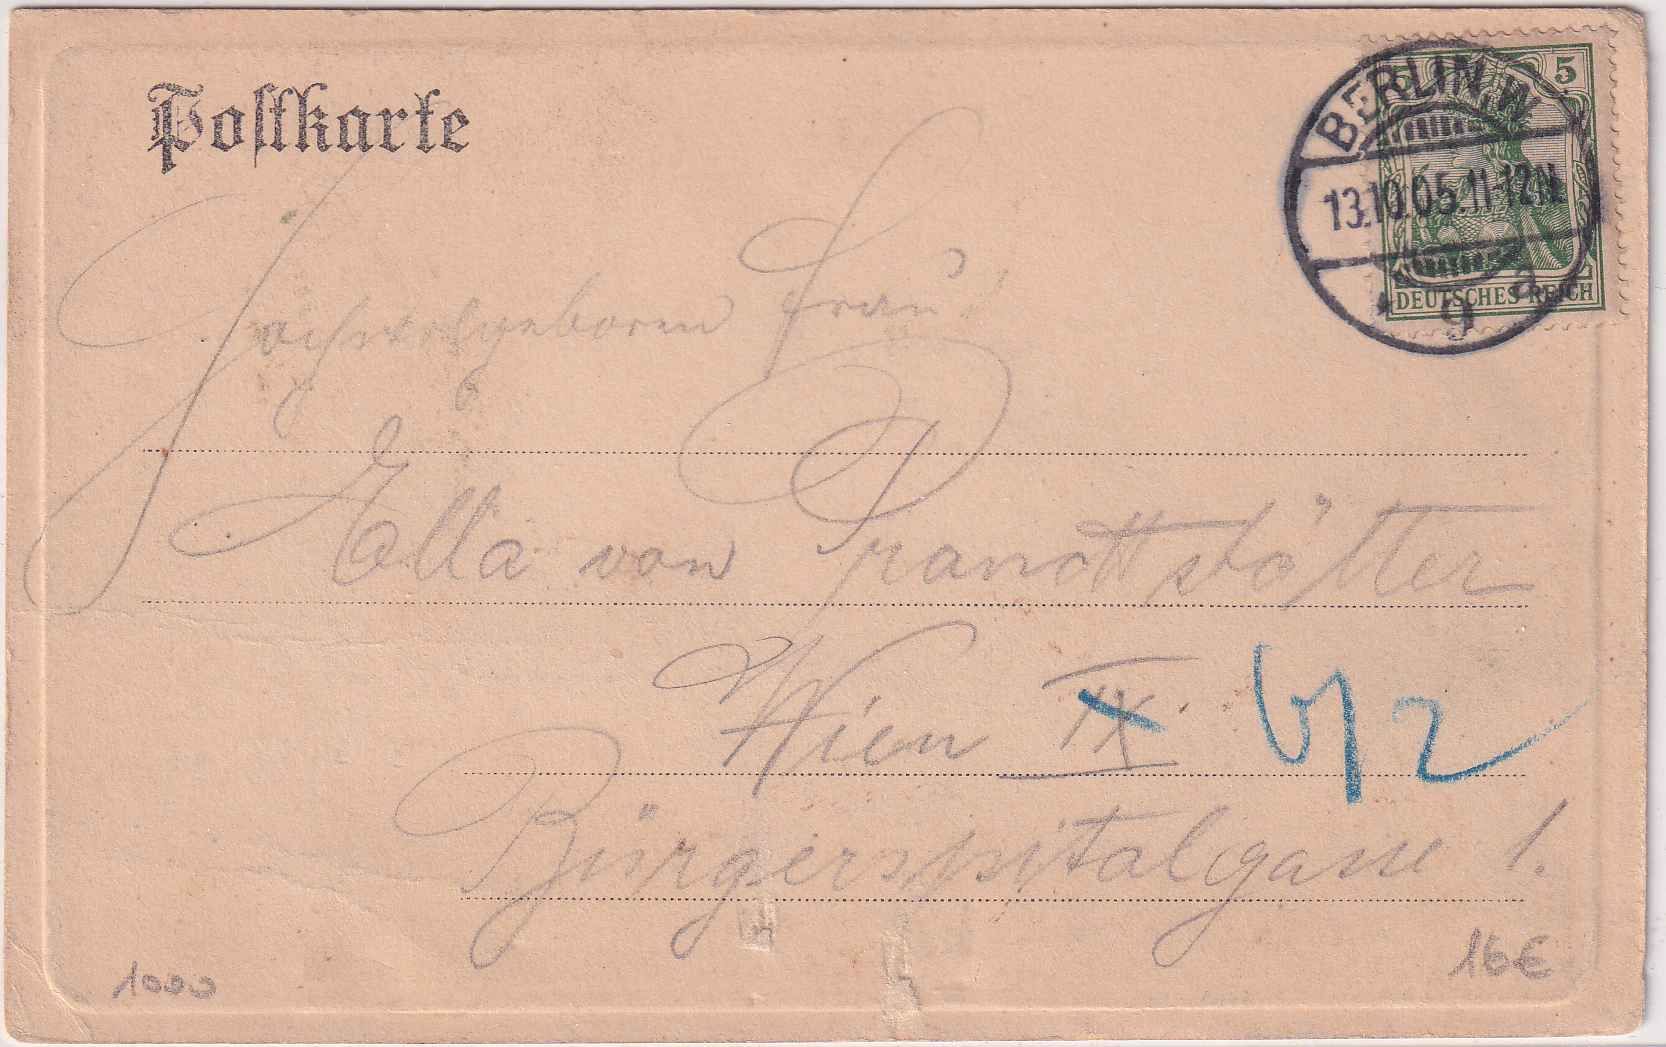 Postkarte
5
BERLIN, W.
13.10.05.11-12N.
* 9 a
DEUTSCHES REICH
Hochwohlgeboren Frau
Ella von
Wien IX. 6/2
Bürgerspitalgasse 1.
1000
16€